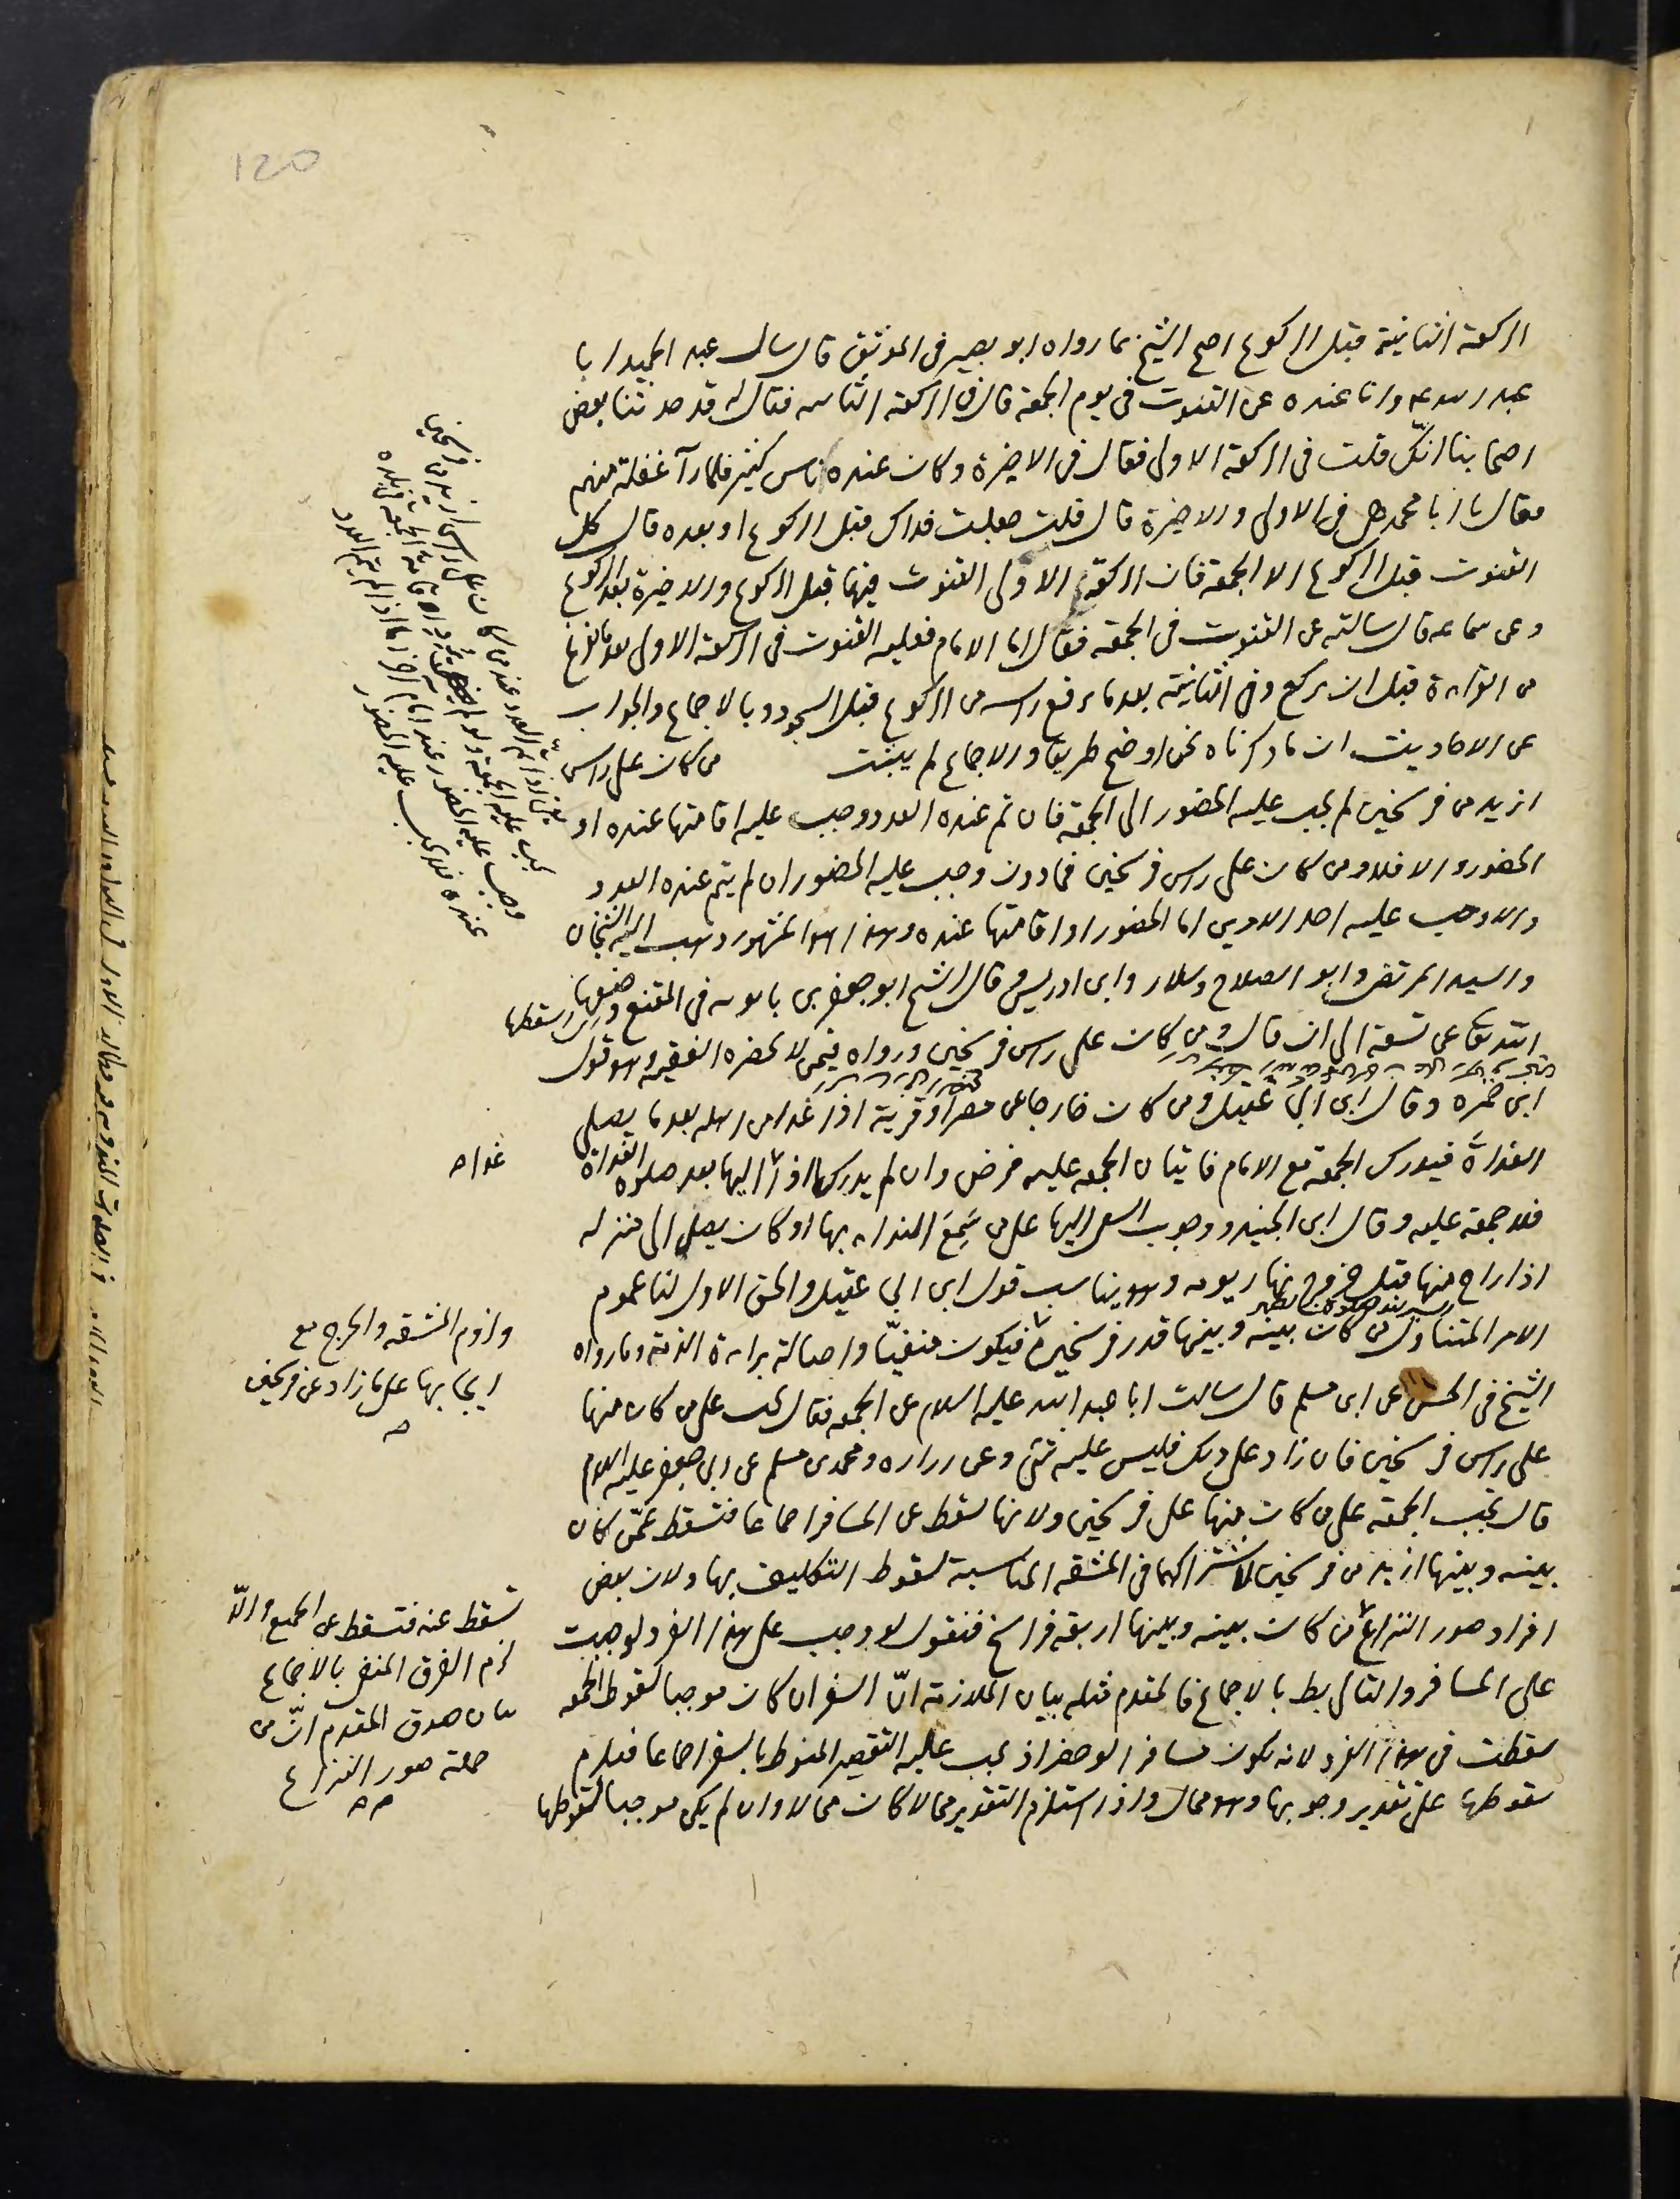 120
الركعة الثانية قبل الركوع احتج الشيخ بما رواه ابو بصير فى الموثق قال سال عبد الحميد ابا
عبد الله ع وانا عنده عن القنوت فى يوم الجمعة قال فى الركعة الثانيه فقال له قد حدثنا بعض
اصحابنا انّك قلت فى الركعة الاولى فقال فى الاخيرة وكان عنده ناس كثير فلما رآ غفلة منهم
فقال يا ابا محمد هى فى الاولى والاخيرة قال قلت جعلت فداك قبل الركوع او بعده قال كل
القنوت قبل الركوع الا الجمعة فان الركعة الاولى القنوت فيها قبل الركوع والاخيرة بعد الركوع
وعن سماعه قال سالته عن القنوت فى الجمعة فقال اما الامام فعليه القنوت فى الركعة الاولى بعد ما يفرغ
من القراءة قبل ان يركع وفى الثانية بعد ما يرفع راسه من الركوع قبل السجود وبالاجماع والجواب
عن الاحاديث ان ما ذكرناه نحن اوضح طريقا والاجماع لم يثبت من كان على راس
ازيد من فرسخين لم يجب عليه الحضور الى الجمعة فان تم عنده العدد وجب عليه اقامتها عنده او
الحضور والا فلا ومن كان على راس فرسخين فما دون وجب عليه الحضور ان لم يتم عنده العدد
والا وجب عليه احد الامرين اما الحضور او اقامتها عنده وهذا هو المشهور ذهب اليه الشيخان
والسيد المرتضى وابو الصلاح وسلار وابن ادريس وقال الشيخ ابو جعفر بن بابويه فى المقنع وضعها
الله تعالى عن تسعة الى ان قال ومن كان على راس فرسخين ورواه فيمن لا يحضره الفقيه وهو قول
ابن حمزه وقال ابن ابى عقيل ومن كان خارجا من مصر او قرية اذا غدا من اهله بعد ما يصلى
الغداة فيدرك الجمعة مع الامام فاتيان الجمعه عليه فرض وان لم يدركها اذا اليها بعد صلوة الغداة
فلا جمعة عليه وقال ابن الجنيد ووجوب السعى اليها على من سَمِعَ النداء بها او كان يصل الى منزله
اذا راح منها قبل خروج نهار يومه وهو يناسب قول ابن ابى عقيل والحق الاول لنا عموم
الامر المتناول من كان بينه وبينها قدر فرسخين فيكون منفيّا واصالة براءة الذمة وما رواه
الشيخ فى الحسن عن ابن مسلم قال سالت ابا عبد الله عليه السلام عن الجمعه فقال يجب على من كان منها
على راس فرسخين فان زاد على ذلك فليس عليه شئ وعن زراره ومحمد بن مسلم عن ابى جعفر عليه السلام
قال تجب الجمعة على من كان منها على فرسخين ولانها تسقط عن المسافر اجماعا فتسقط عمّن كان
بينه وبينها ازيد من فرسخين لاشتراكهما فى المشقه المناسبة لسقوط التكليف بها ولان بعض
افراد صور النزاع من كان بينه وبينها اربعة فراسخ فنقول لو وجب على هذا الفرد لوجبت
على المسافر والتالى بط بالاجماع فالمقدم مثله بيان الملازمة انّ السفر ان كان موجبا لسقوط الجمعه
سقطت فى هذا الفرد لانه يكون مسافرا لو حضر اذ يجب عليه التقصير المنوط بالسفر اجماعا فيلزم
سقوطها على تقدير وجوبها وهو محال واذا استلزم التقدير محالا كان محالا وان لم يكن موجبا لسقوطها
غدا ص
ولزوم المشقه والحرج مع
ايجابها على ما زاد عن فرسخين
تسقط عنه فتسقط عن الجميع والّا
لزم الفرق المنفى بالاجماع
بيان صدق المقدم انّ من
جملة صور النزاع